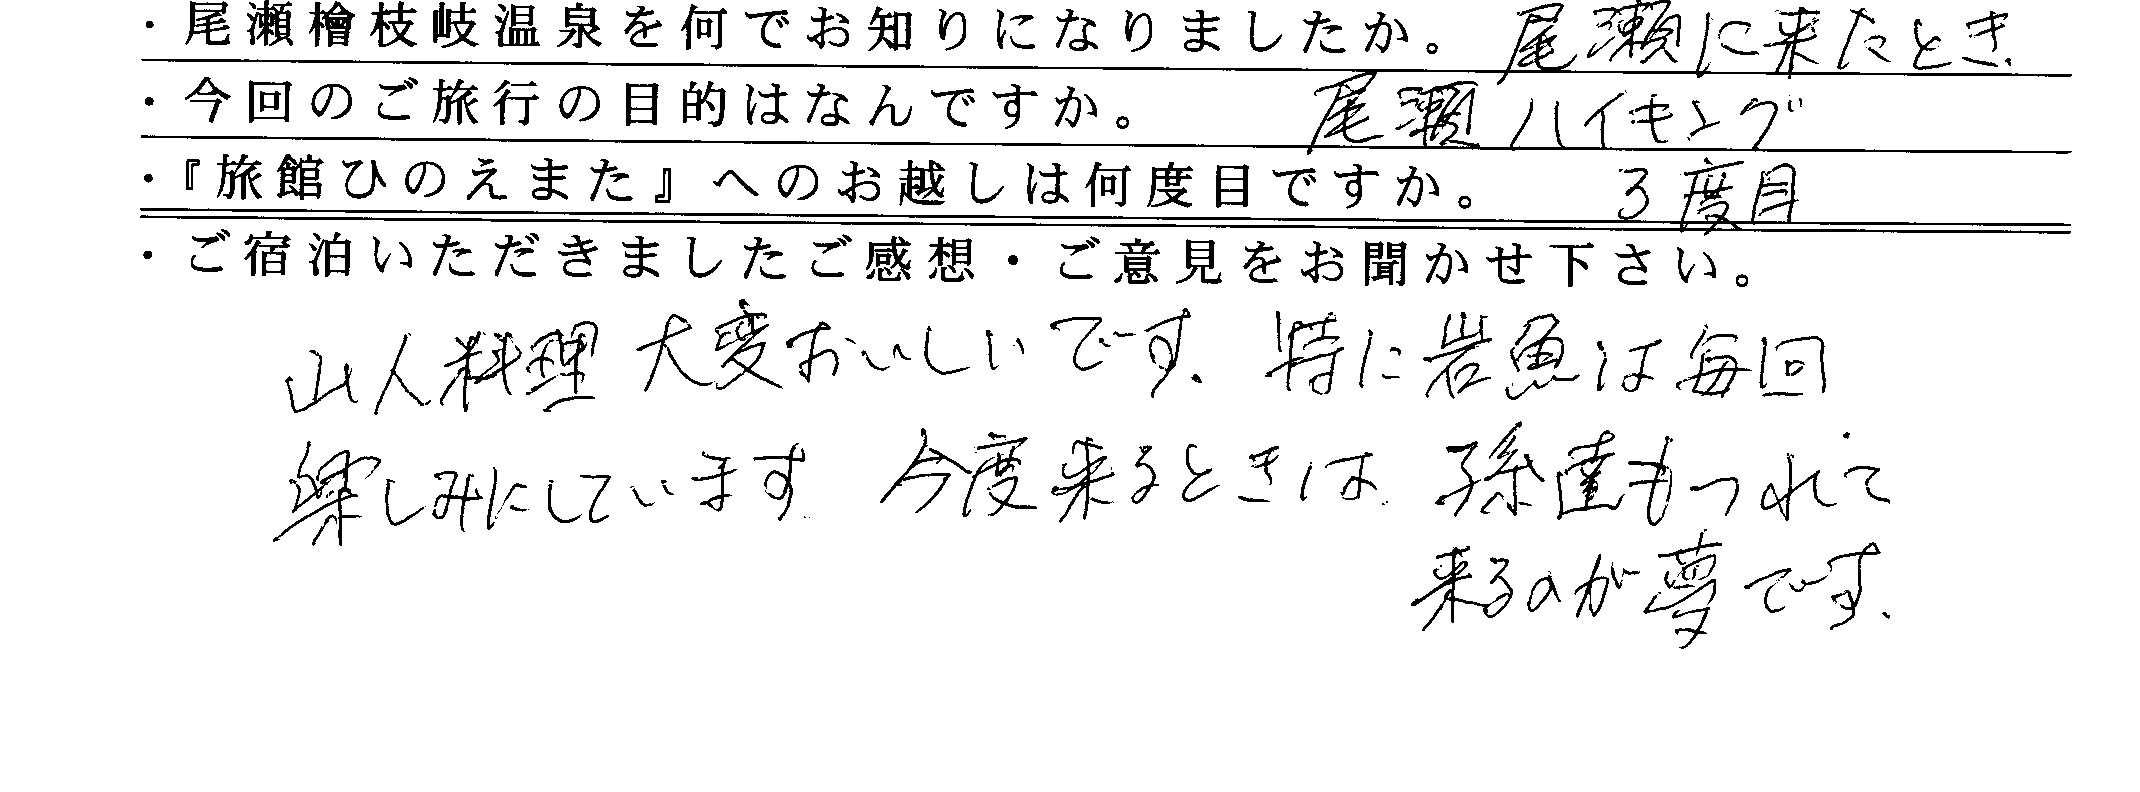 ・尾瀬檜枝岐温泉を何でお知りになりましたか。 尾瀬に来たとき.
・今回のご旅行の目的はなんですか。 尾瀬ハイキング
・『旅館ひのえまた』へのお越しは何度目ですか。 3度目
・ご宿泊いただきましたご感想・ご意見をお聞かせ下さい。
山人料理 大変おいしいです. 特に岩魚は毎回
楽しみにしています. 今度来るときは. 孫達もつれて
来るのが夢です.